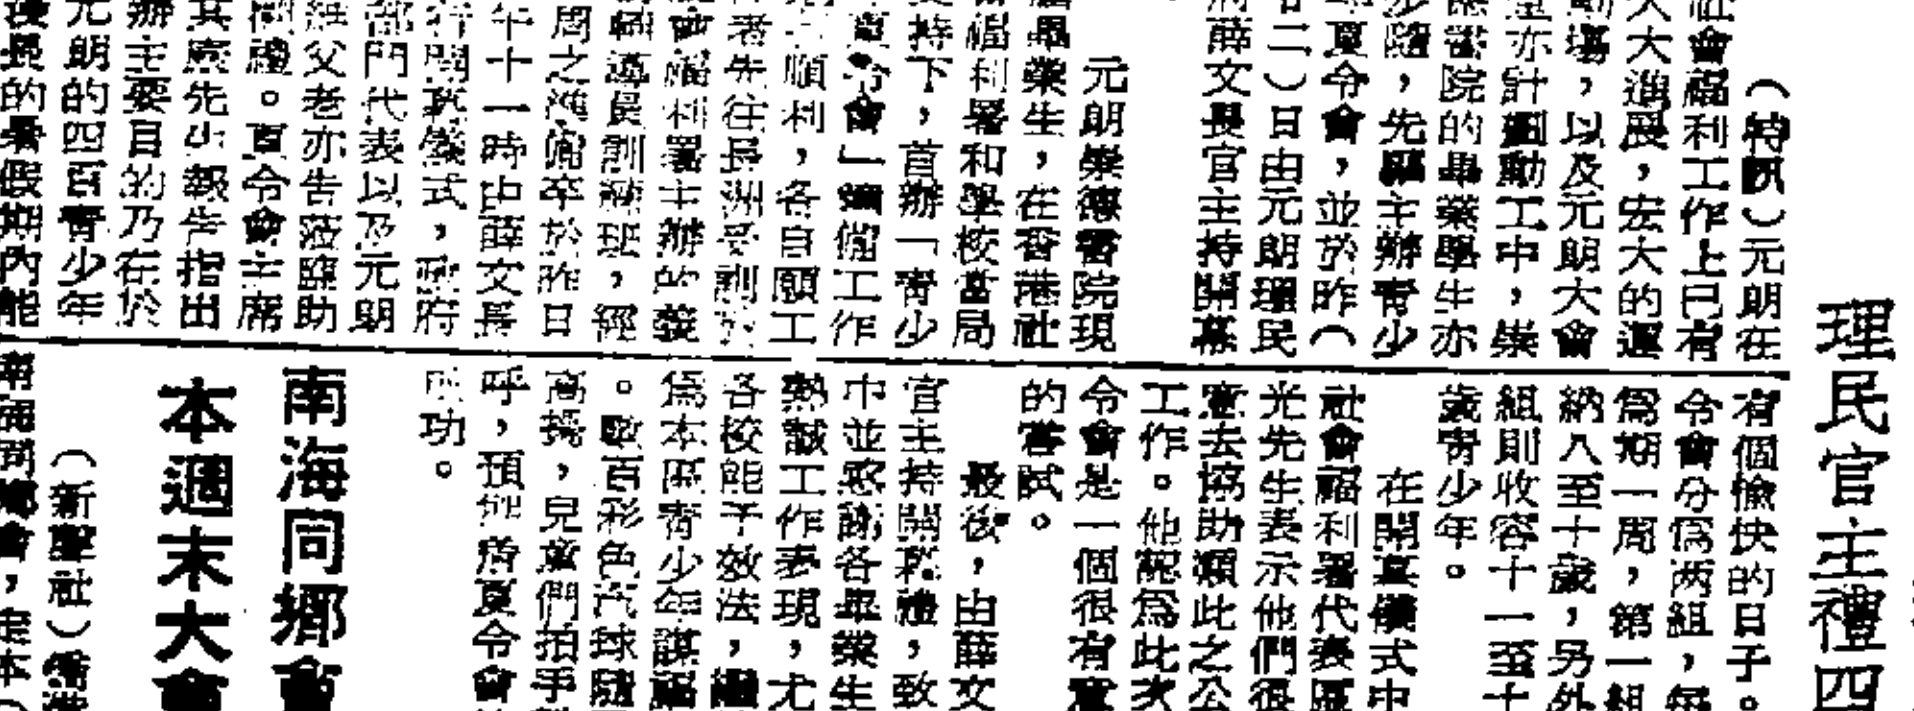 理民官主禮四
（特訊）元朗在
社會福利工作上已有
大大進展，宏大的運
動場，以及元朗大會
堂亦計劃動工中，崇
德書院的畢業學生亦
步隨，先驅主辦青少
年夏令會，並於昨（
廿二）日由元朗理民
府薛文長官主持開幕
元朗崇德書院現
屆畢業生，在香港社
會福利署和學校當局
支持下，首辦「青少
年夏令會」籌備工作
順利，各自願工
作者先往長洲受訓於
社會福利署主辦的義
務輔導員訓練班，經
周之進備卒於昨日
午十一時由薛文長
行開幕儀式，政府
部門代表以及元朗
父老亦告蒞臨助
開禮。夏令會主席
其康先生報告指出
辦主要目的乃在於
元朗的四百青少年
漫長的暑假期內能
有個愉快的日子。
令會分為兩組，每
為期一周，第一組
納八至十歲，另外
組則收容十一至十
歲青少年。
在開幕儀式中
社會福利署代表區
光先生表示他們很
意去協助類此之公
工作。他認為此次
令會是一個很有意
的嘗試。
最後，由薛文
官主持開幕禮，致
中並感謝各畢業生
熱誠工作表現，尤
各校能予效法，繼
為本區青少年謀福
。數百彩色汽球隨
高揚，兒童們拍手
呼，預祝青夏令會
成功。
南海同鄉會
本週末大會
（新聲社）香港
南海同鄉會，定本（